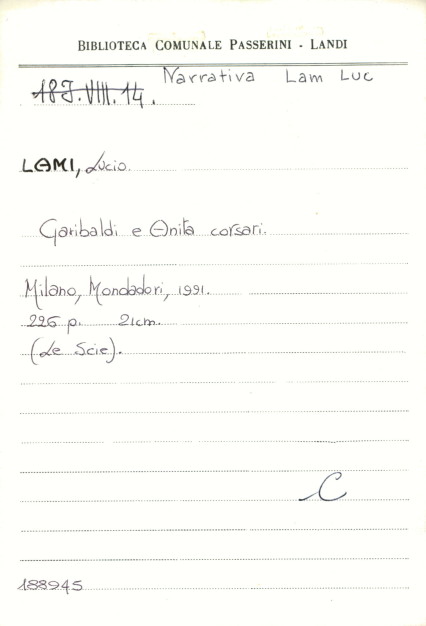 BIBLIOTECA COMUNALE PASSERINI - LANDI
18J.VIII.14. Narrativa Lam Luc
LAMI, Lucio.
Garibaldi e Anita corsari.
Milano, Mondadori, 1991.
226 p. 21cm.
(Le Scie).
C
188945